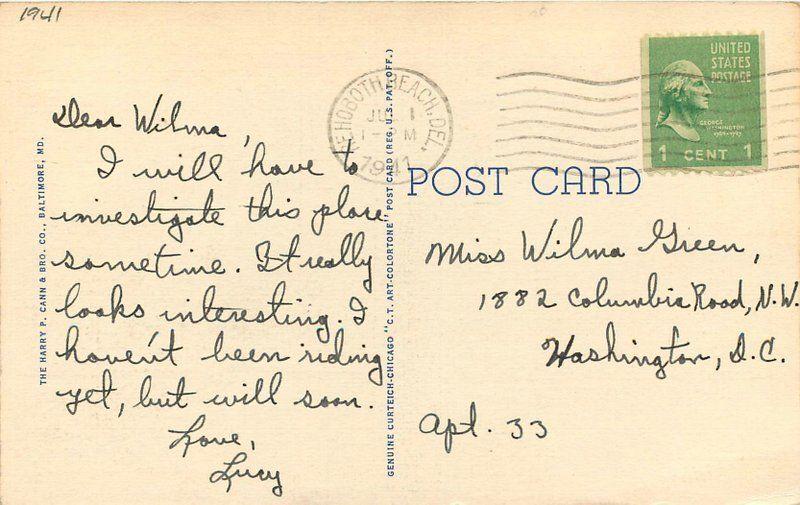 1941
Dear Wilma,
I will have to
investigate this place
sometime. It really
looks interesting. I
haven't been riding
yet, but will soon.
Love,
Lucy
THE HARRY P. CANN & BRO. CO., BALTIMORE, MD.
GENUINE CURTEICH-CHICAGO "C.T. ART-COLORTONE" POST CARD (REG. U.S. PAT. OFF.)
REHOBOTH BEACH, DEL.
JUL 1
1-PM
1941
UNITED
STATES
POSTAGE
GEORGE
WASHINGTON
1789-1797
1 CENT 1
POST CARD
Miss Wilma Green,
1882 Columbia Road, N.W.
Washington, D.C.
Apt. 33